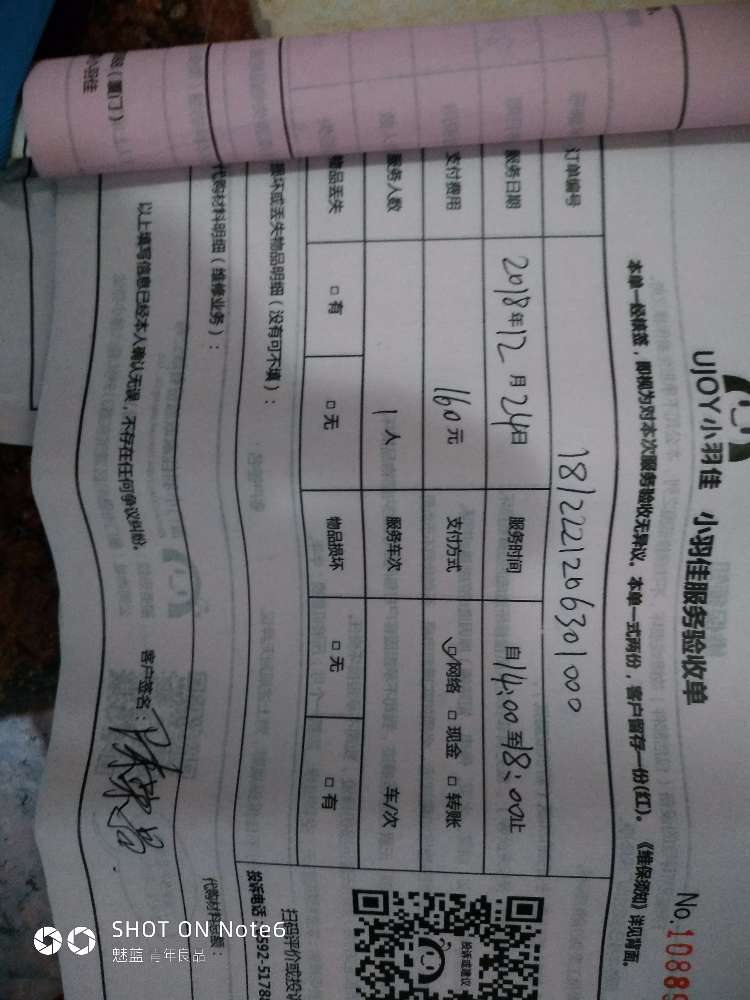 UJOY小羽佳 小羽佳服务验收单
No.1088
本单一经核签，即视为对本次服务验收无异议。本单一式两份，客户留存一份(红)。《维保须知》详见背面。
订单编号 1812221206301000
服务日期 2018年12月24日 服务时间 自14:00至18:00止
支付费用 160元 支付方式 网络 □现金 □转账
服务人数 1人 服务车次 车/次
物品丢失 □有 □无 物品损坏 □无 □有
损坏或丢失物品明细（没有可不填）：
代购材料明细（维修业务）：
以上填写信息已经本人确认无误，不存在任何争议纠纷。 客户签名：
扫码评价或投诉
投诉电话
592-5178
投诉或建议
(厦门)
小羽佳
SHOT ON Note6
魅蓝 青年良品